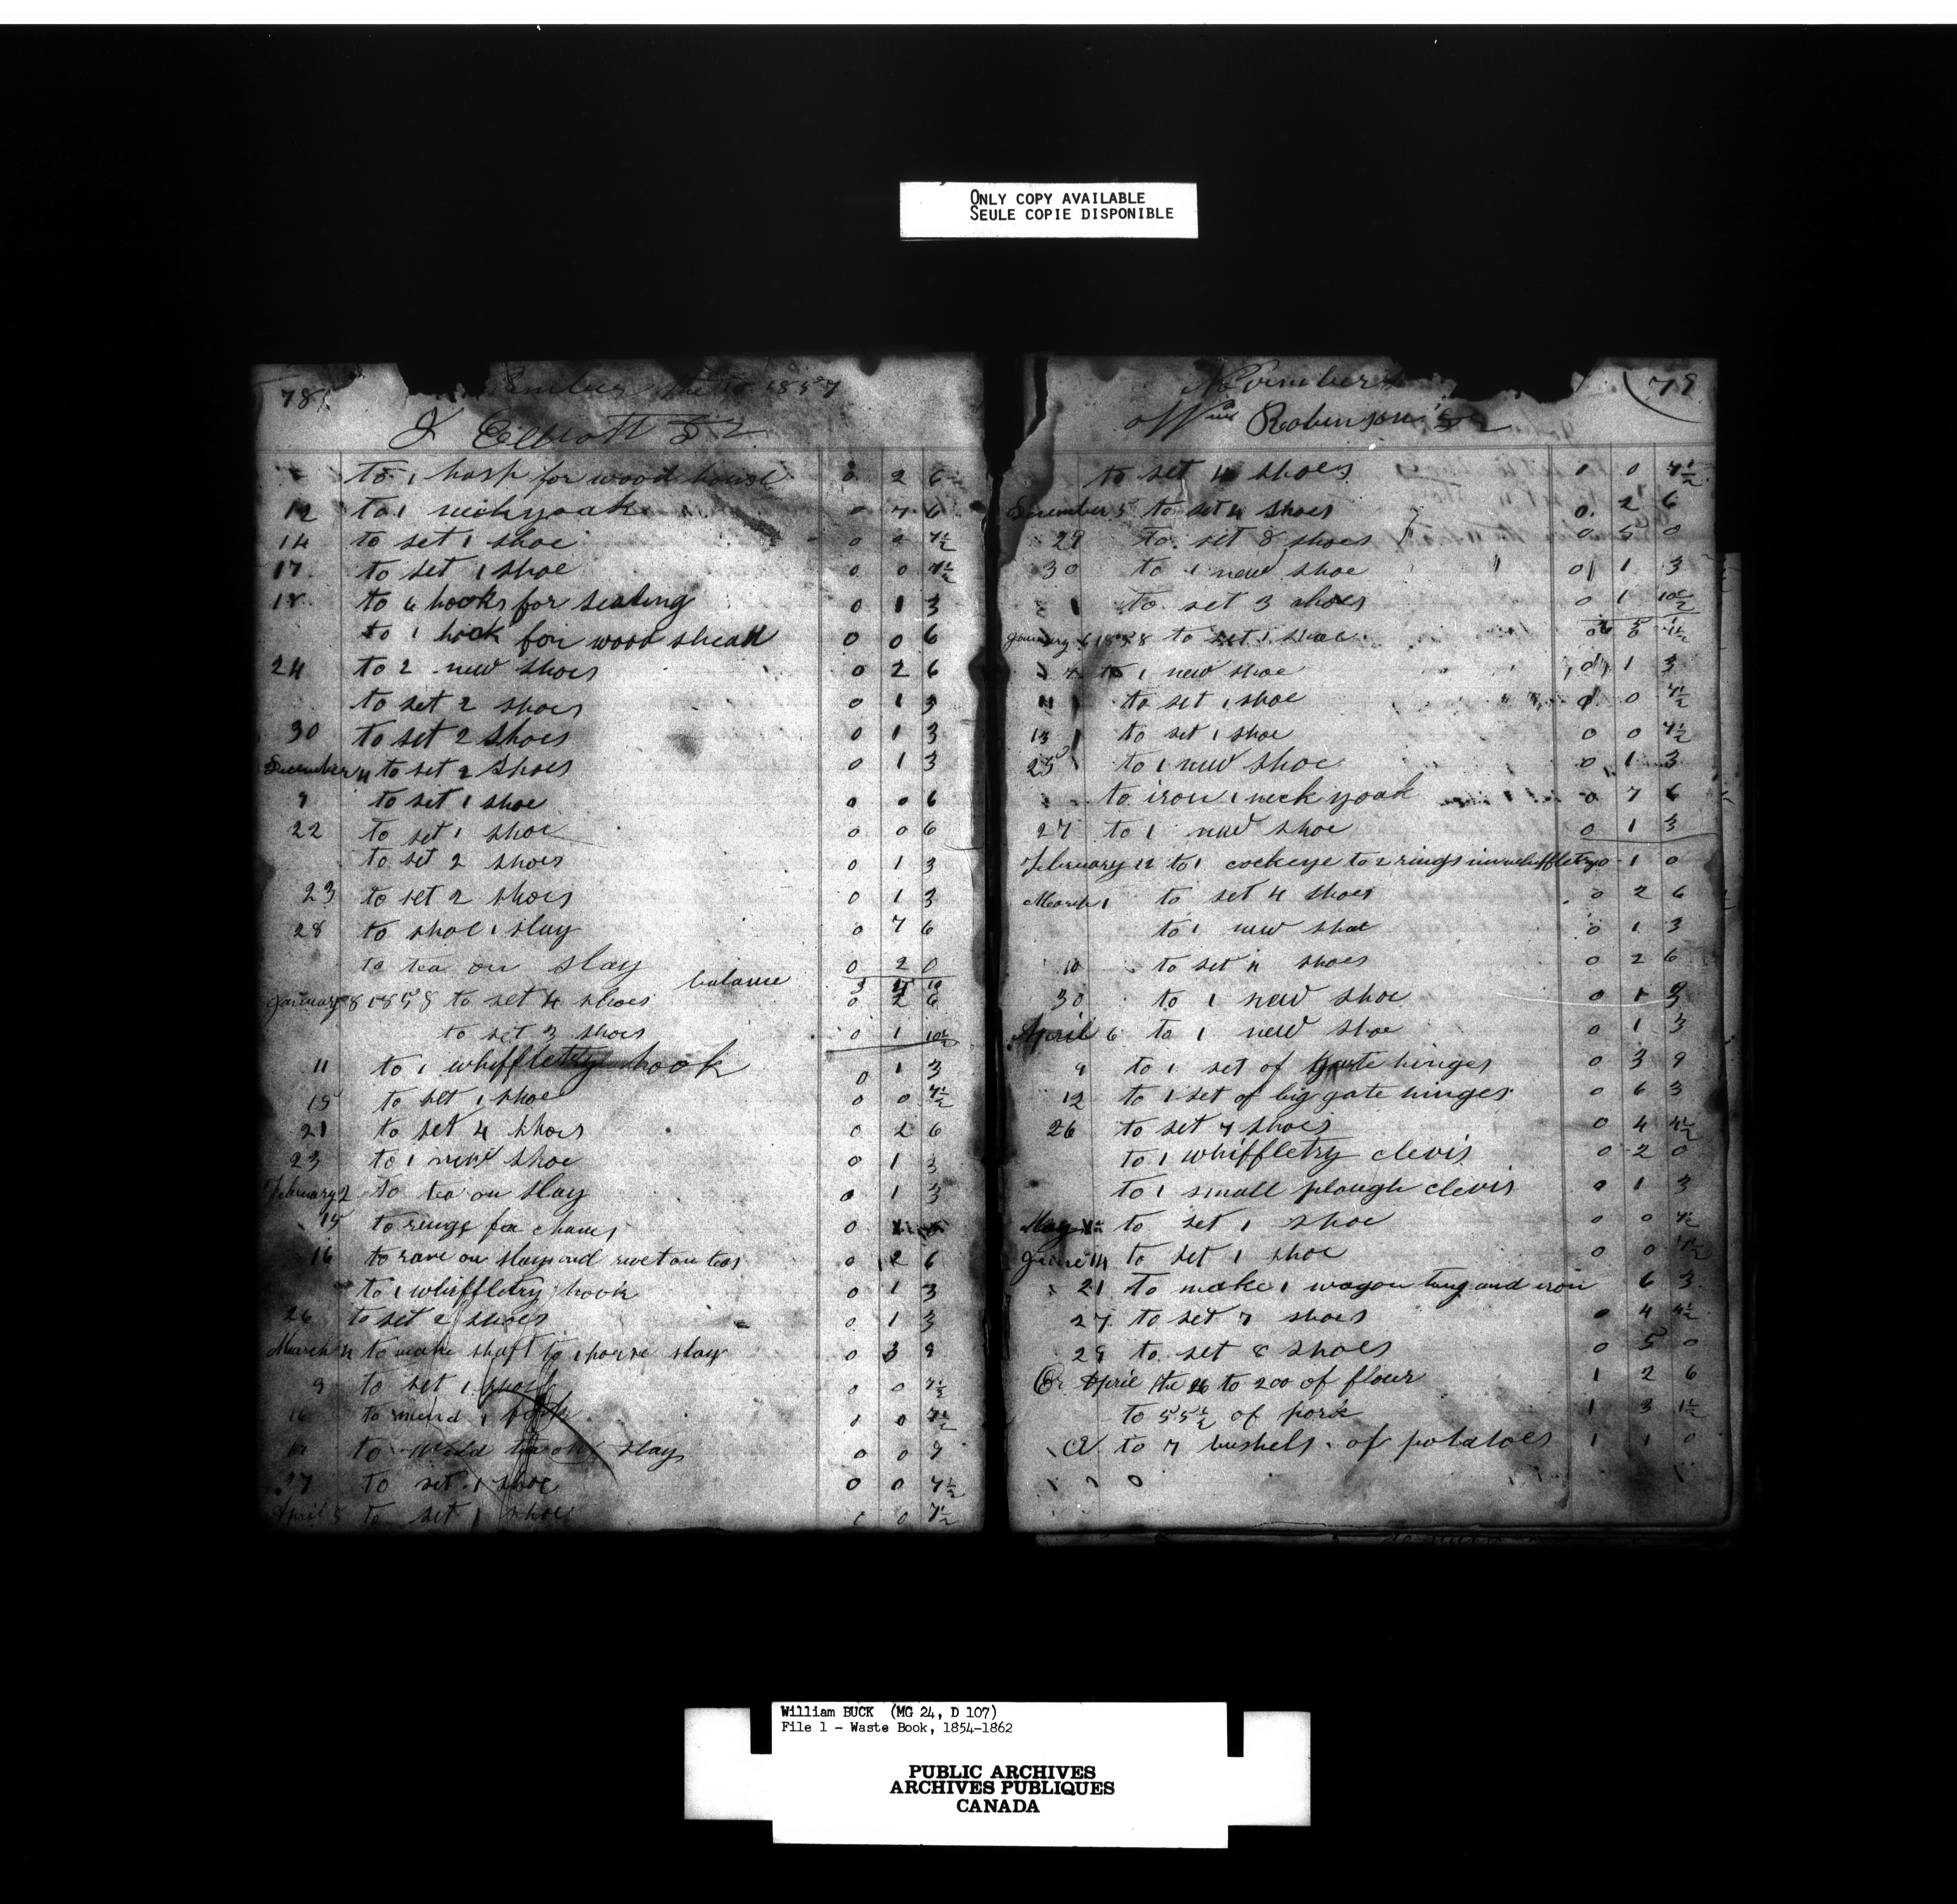 ONLY COPY AVAILABLE
SEULE COPIE DISPONIBLE
78
1857
J Elliott Dr
to 1 hasp for wood house 0 2 6
12 to 1 neckyoak 0 7 6
14 to set 1 shoe 0 0 7½
17 to set 1 shoe 0 0 7½
18 to 6 hooks for seating 0 1 3
to 1 hook for wood shead 0 0 6
24 to 2 new shoes 0 2 6
to set 2 shoes 0 1 3
30 to set 2 shoes 0 1 3
December 4 to set 2 shoes 0 1 3
to set 1 shoe 0 0 6
22 to set 1 shoe 0 0 6
to set 2 shoes 0 1 3
23 to set 2 shoes 0 1 3
28 to shoe 1 slay 0 7 6
to tea on slay 0 2 0
balance
January 8 1858 to set 4 shoes 0 2 6
to set 3 shoes 0 1 10½
11 to 1 whiffletry hook 0 1 3
15 to set 1 shoe 0 0 7½
21 to set 4 shoes 0 2 6
23 to 1 new shoe 0 1 3
February 2 to tea on slay 0 1 3
15 to rings for chanes 0
16 to rave on slay and rivet on teas 0 2 6
to 1 whiffletry hook 0 1 3
26 to set 2 shoes 0 1 3
March 4 to make shaft to 1 horse slay 0 3 9
9 to set 1 shoe 0 0 7½
16 to mend 1 0 7½
to weld tea on slay 0 0 9
27 to set 1 shoe 0 0 7½
April 5 to set 1 shoe 0 7½
November 79
Wm Robinson Dr
to set shoes 0 0 7½
December 5 to set 4 shoes 0 2 6
29 to set 8 shoes 0 5 0
30 to 1 new shoe 0 1 3
to set 3 shoes 0 1 10½
January 6 1858 to set 1 shoe
to 1 new shoe 0 1 3
11 to set 1 shoe 0 0 7½
13 to set 1 shoe 0 0 7½
25 to 1 new shoe 0 1 3
to iron 1 neck yoak 0 7 6
27 to 1 new shoe 0 1 3
February 22 to 1 cockeye to 2 rings in whiffletry 0 1 0
March 1 to set 4 shoes 0 2 6
to 1 new shoe 0 1 3
10 to set 4 shoes 0 2 6
30 to 1 new shoe 0 1 3
April 6 to 1 new shoe 0 1 3
9 to 1 set of gate hinges 0 3 9
12 to 1 set of big gate hinges 0 6 3
26 to set 7 shoes 0 4 4½
to 1 whiffletry clevis 0 2 0
to 1 small plough clevis 0 1 3
May to set 1 shoe 0 0 7½
June 14 to set 1 shoe 0 0 7½
21 to make 1 wagon tung and iron 6 3
27 to set 7 shoes 0 4 4½
29 to set 8 shoes 0 5 0
Cr April the 26 to 200 of flour 1 2 6
to 55½ of pork 1 3 1½
Cr to 7 bushels of potatoes 1 1 0
William BUCK (MG 24, D 107)
File 1 - Waste Book, 1854-1862
PUBLIC ARCHIVES
ARCHIVES PUBLIQUES
CANADA